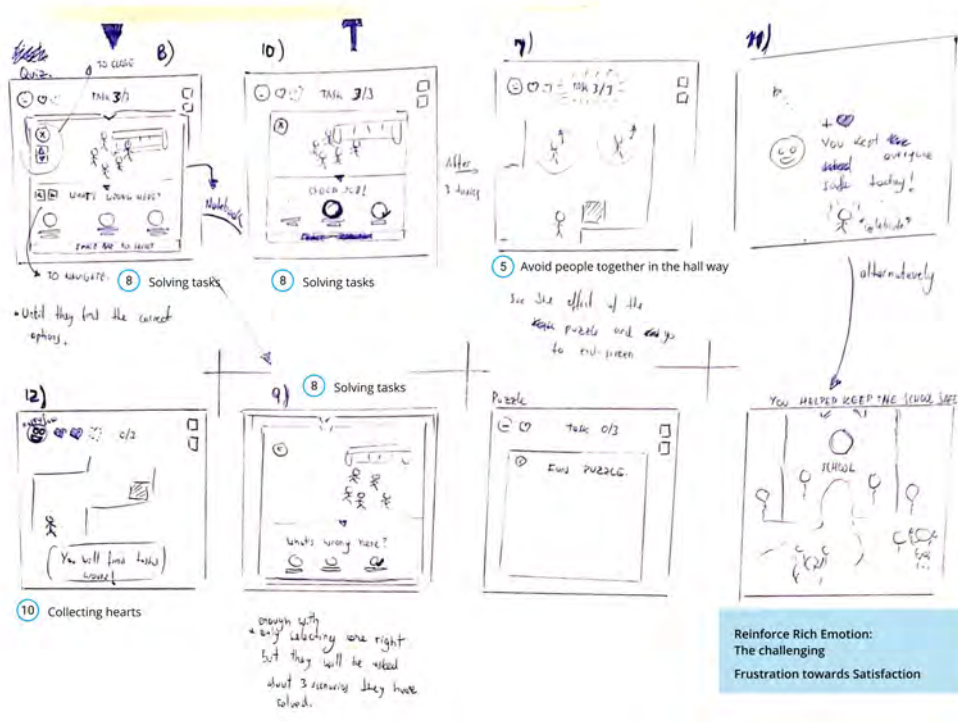 Quiz.
8)
TO CLOSE
TASK 3/3
WHAT'S WRONG HERE?
TO NAVIGATE.
8 Solving tasks
• Until they find the correct
options.
10)
T
TASK 3/3
GOOD JOB!
8 Solving tasks
After
3 tasks
7)
TASK 3/3
5 Avoid people together in the hall way
See the effect of the
puzzle and go
to end-screen
11)
+
You kept
everyone
safe today!
"celebrate"
alternatively
12)
0/3
You will find tasks
10 Collecting hearts
9)
8 Solving tasks
What's wrong here?
enough with
• only selecting one right
but they will be asked
about 3 scenarios they have
solved.
Puzzle
TASK 0/3
END PUZZLE.
YOU HELPED KEEP THE SCHOOL SAFE
SCHOOL
Reinforce Rich Emotion:
The challenging
Frustration towards Satisfaction